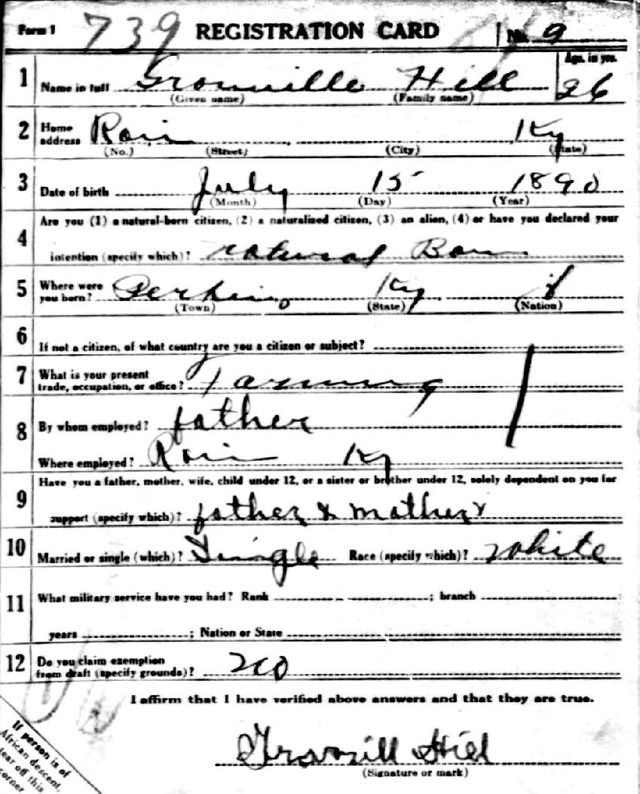 Form 1 739 REGISTRATION CARD No. 9
1 Name in full Gronville Hill Age, in yrs. 26
(Given name) (Family name)
2 Home address Ky
(No.) (Street) (City) (State)
3 Date of birth July 15 1890
(Month) (Day) (Year)
4 Are you (1) a natural-born citizen, (2) a naturalized citizen, (3) an alien, (4) or have you declared your
intention (specify which)? natural Born
5 Where were you born? Perkins Ky
(Town) (State) (Nation)
6 If not a citizen, of what country are you a citizen or subject?
7 What is your present trade, occupation, or office? Farming
8 By whom employed? father
Where employed? Ky
9 Have you a father, mother, wife, child under 12, or a sister or brother under 12, solely dependent on you for
support (specify which)? father & mother
10 Married or single (which)? Single Race (specify which)? White
11 What military service have you had? Rank ; branch
years ; Nation or State
12 Do you claim exemption from draft (specify grounds)? no
I affirm that I have verified above answers and that they are true.
If person is of
African descent,
tear off this
corner
Hill
(Signature or mark)